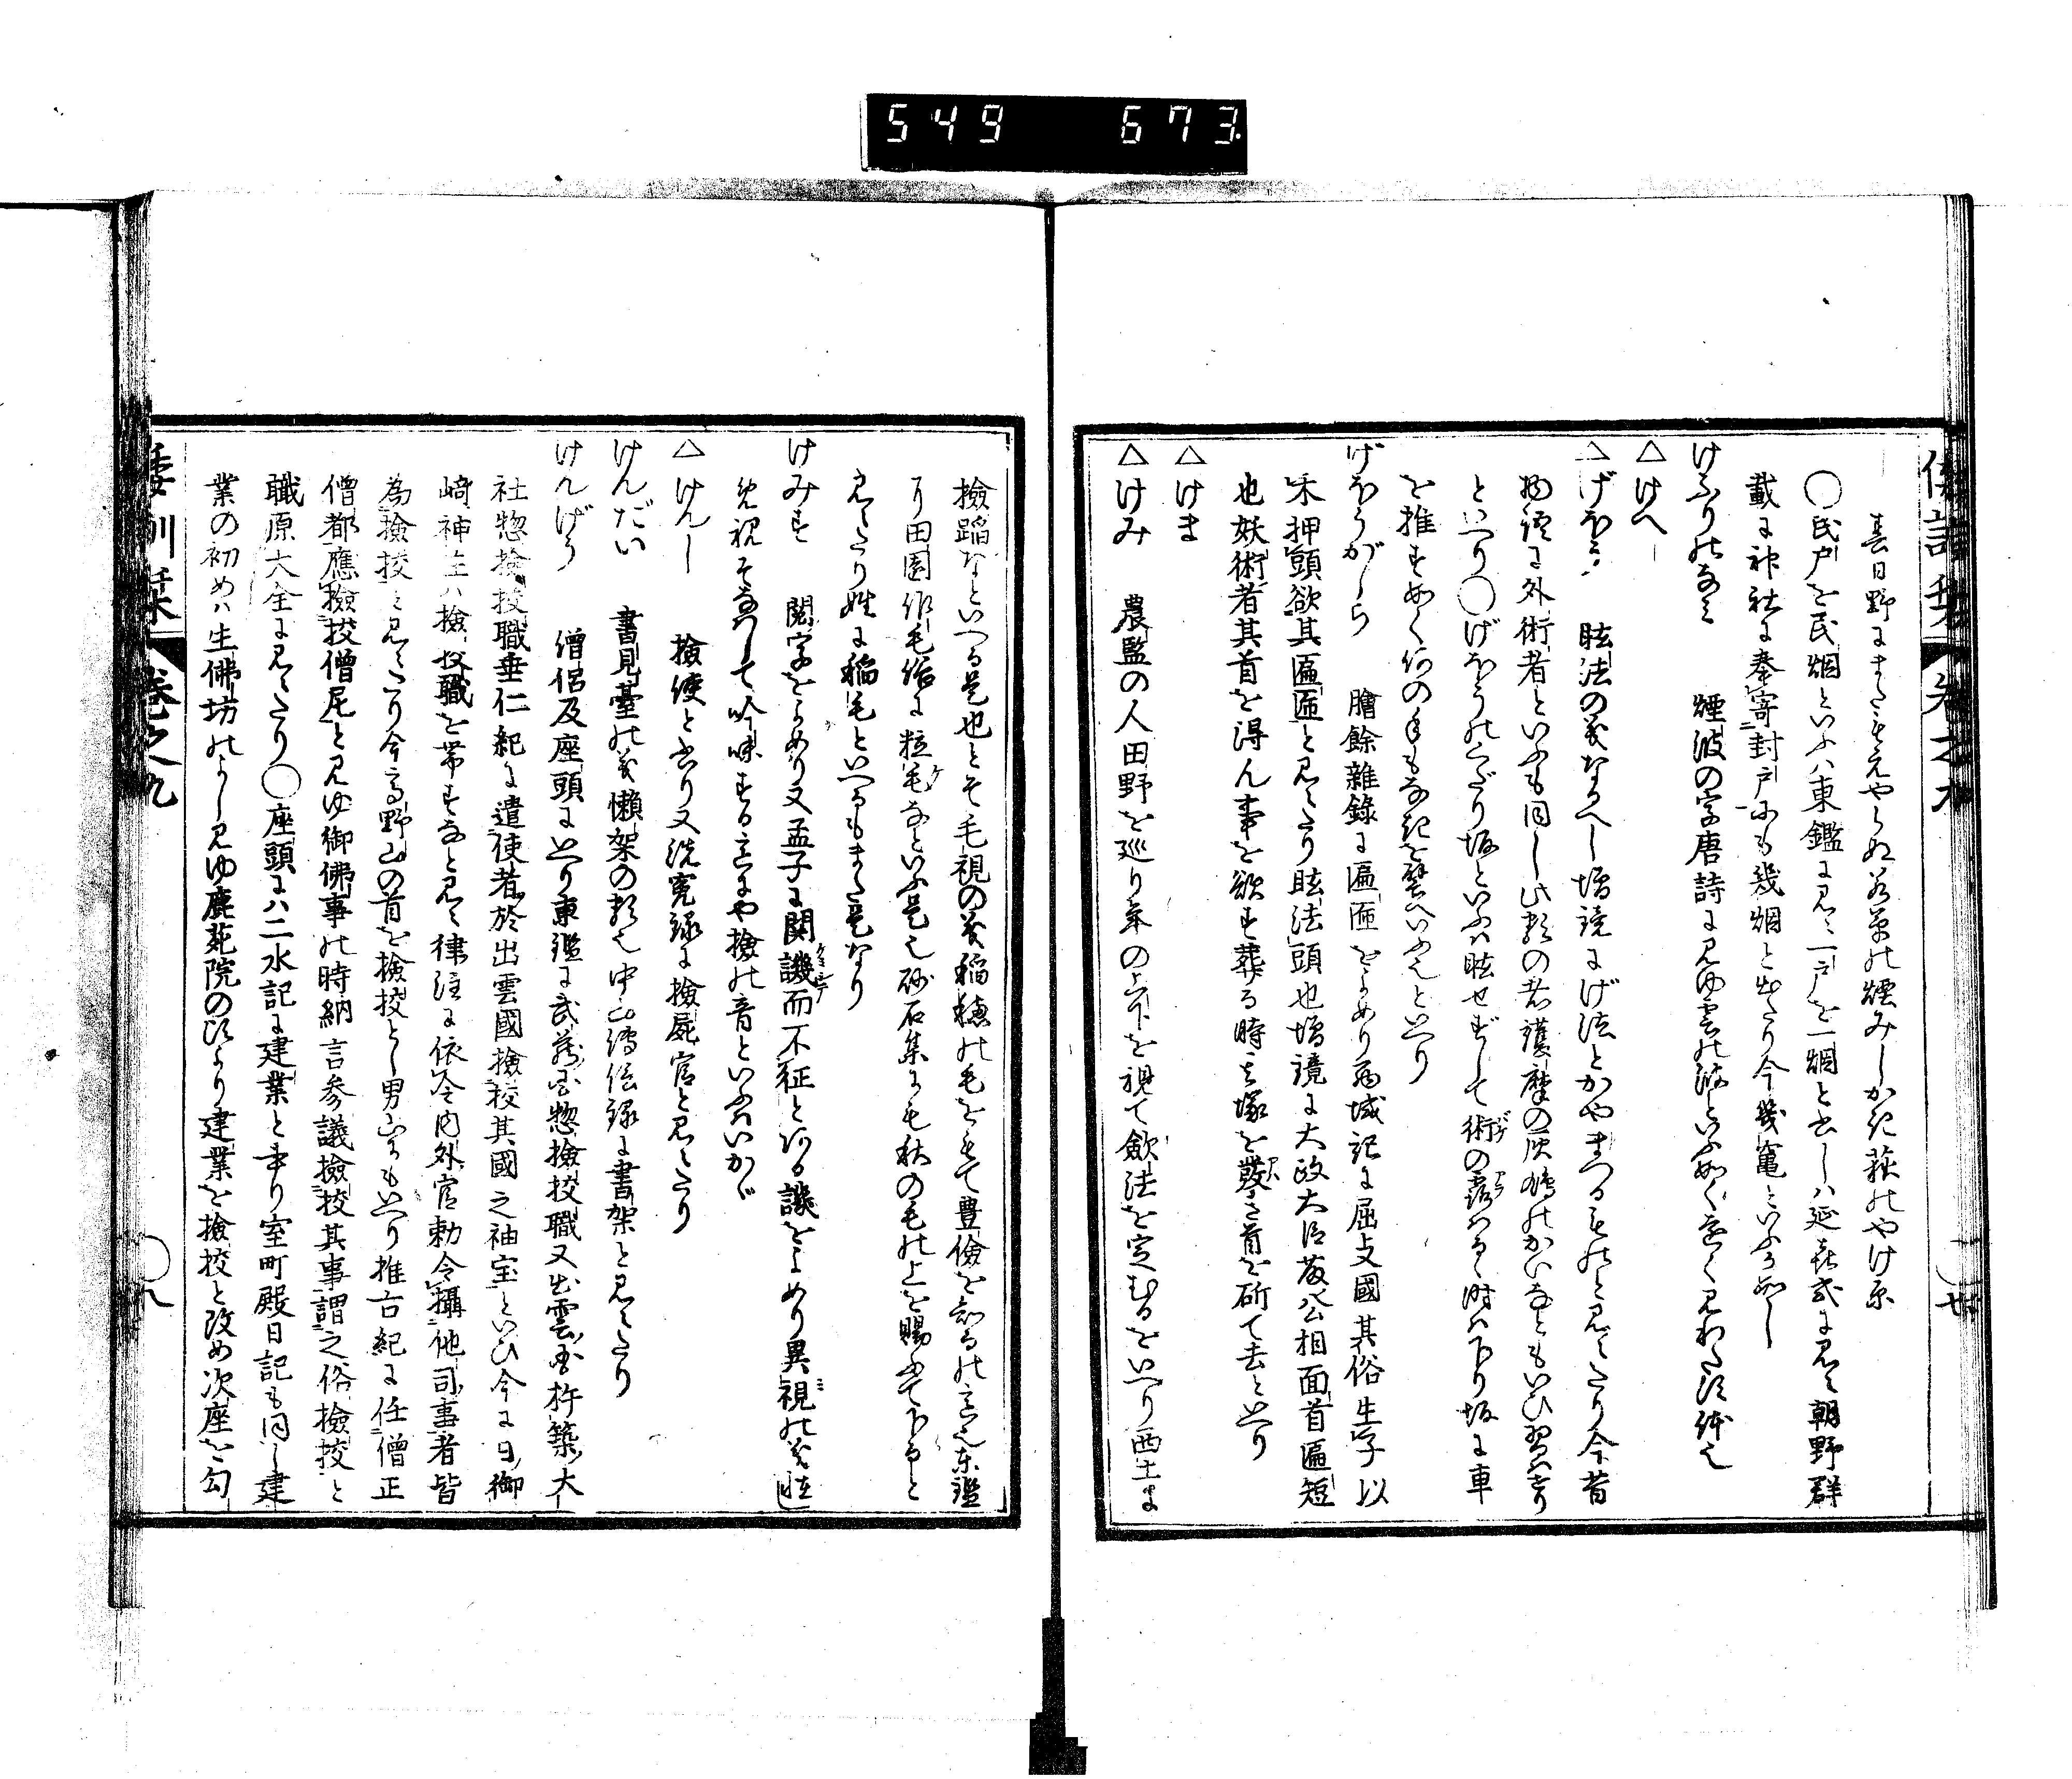 549 673
春日野にまたもえやらぬ若草の煙みしかき荻のやけ原
○民戸を民烟といふハ東鑑に見え一戸を一烟と書しハ延喜式に見え朝野群
載に神社に奉寄封戸にも幾烟と出たり今幾竈といふか如し
けふりのなみ 煙波の字唐詩に見ゆ雲の波といふ如く遠く見わたす体也
△けへ
△げほふ 眩法の義なるへし増鏡にげ法とかやまつるものと見えたり今昔
物語に外術者といふも同し此類の者護摩の灰
といへり○げほうのくだり坂といふハ眩せずして術の露はるゝ時ハ下り坂に車
を推すごとく何の手もなきを譬へいふ也といへり
げほうがしら 膾餘雜錄に匾匜をよめり西域記に屈支國其俗生子以
木押頭欲其匾匜と見えたり眩法頭也増鏡に太政大臣藤公相面首匾短
也妖術者其首を得ん事を欲す葬る時に塚を發き首を斫て去といへり
△けま
△けみ 農監の人田野を巡り年の上下を視て歛法を定むるをいへり西土に
撿蹈なといへる是也とそ毛視の義稲穂の毛をもて豊儉を知るの言也東鑑
に田園作毛俗に粒毛なといふ是也砂石集に毛秋の毛の上を賜ひて下ると
見えたり姓に稲毛といへるもまた是なり
けみす 閲字をよめり又孟子に関譏而不征とある譏をよめり異視の義
先視そなはして吟味する意にや撿の音といふハいかゞ
△けんし 撿使と書り又洗寃録に撿屍官と見えたり
けんだい 書見臺の義懶架の類也中山傳信録に書架と見えたり
けんげう 僧侶及座頭にいへり東鑑に武蔵国惣撿挍職又出雲国杵築大
社惣撿挍職垂仁紀に遣使者於出雲國撿挍其國之神宝といひ今に日御
﨑神主ハ撿挍職を帯すなと見え律注に依令内外官勅令攝他司事者皆
為撿挍と見えたり今高野山の首を撿挍とし男山にもいへり推古紀に任僧正
僧都應撿挍僧尼と見ゆ御佛事の時納言参議撿挍其事謂之俗撿挍と
職原大全に見えたり○座頭にハ二水記に建業と書り室町殿日記も同し建
業の初めハ生佛坊のよし見ゆ鹿苑院の頃より建業を撿挍と改め次座を勾
倭訓栞 巻之九